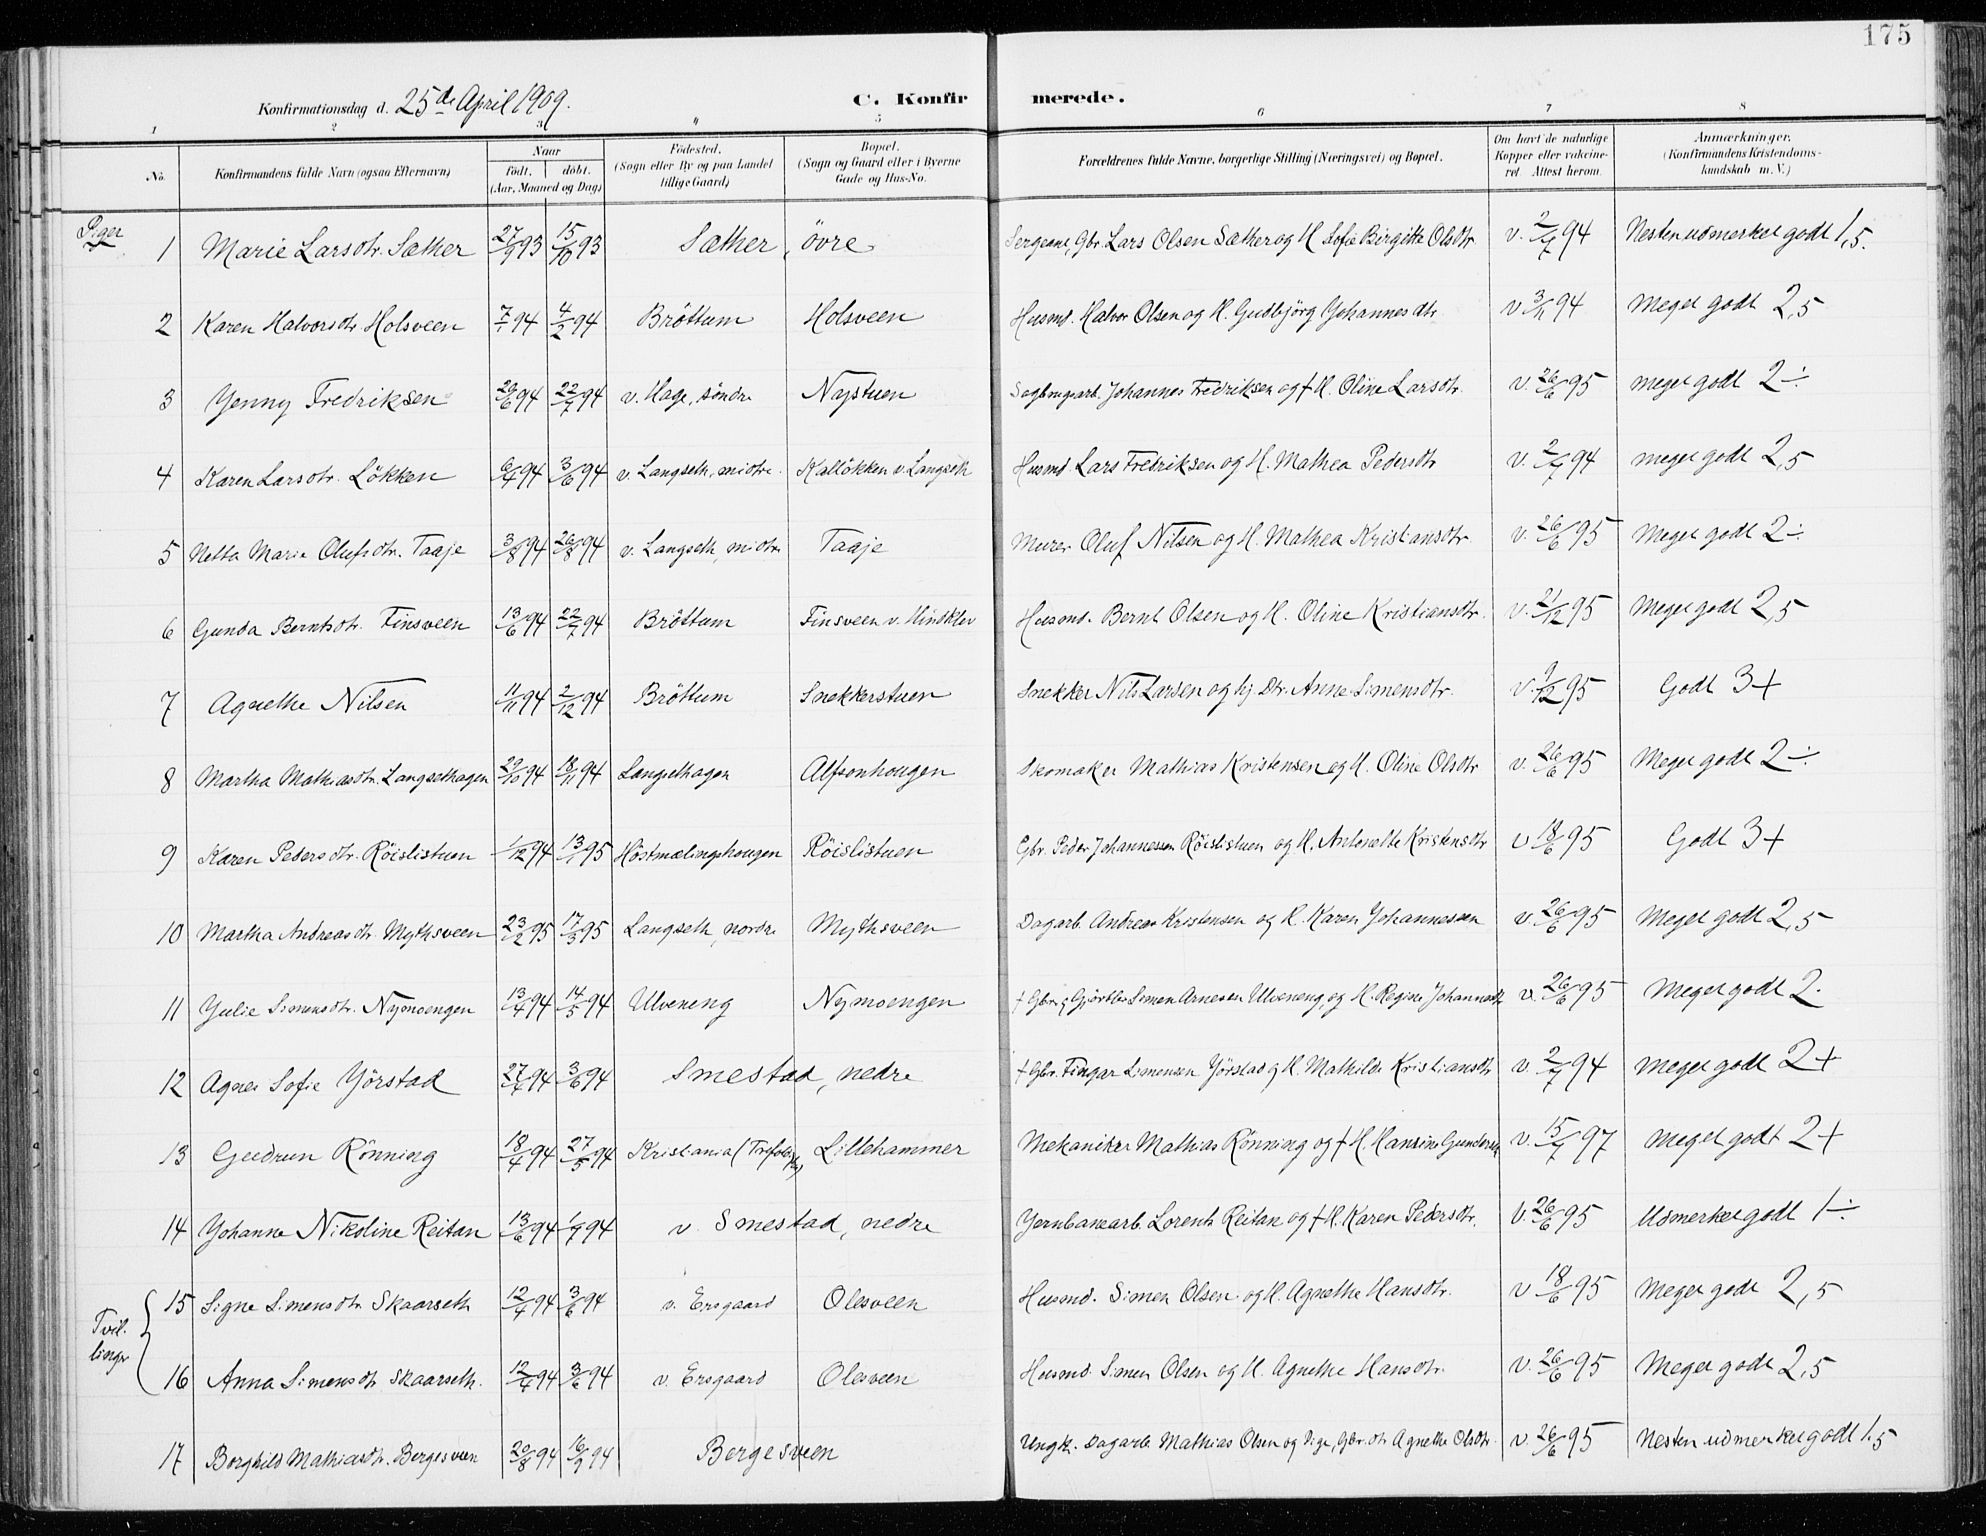 175
Konfirmationsdag d. 25de April 1909.
C. Konfirmerede.
1 2 3 4 5 6 7 8
No. Konfirmandens fulde Navn (ogsaa Efternavn) Naar födt. döbt. (Aar, Maaned og Dag) Födested. (Sogn eller By og paa Landet tillige Gaard) Bopæl. (Sogn og Gaard eller i Byerne Gade og Hus-No. Forældrenes fulde Navne, borgerlige Stilling (Næringsvei) og Bopæl. Om havt de naturlige Kopper eller vakcineret. Attest herom. Anmærkninger. (Konfirmandens Kristendomskundskab m. V.)
Piger
1 Marie Larsdtr. Sæther 27/9 93 15/10 93 Sæther, övre Sergeant, Gbr. Lars Olsen Sæther og H. Sofie Birgitte Olsdtr v. 2/7 94 Nesten udmerket godt 1,5.
2 Karen Halvorsdtr Holsveen 7/1 94 4/2 94 Bröttum Holsveen Husmd. Halvor Olsen og H. Gudbjörg Johannesdtr. v 3/11 94 Meget godt 2,5
3 Jenny Fredriksen 20/6 94 22/7 94 v. Hage, söndre Nystuen Sagbrugsarb. Johannes Fredriksen og † H. Oline Larsdtr. v. 26/6 95 meget godt 2÷
4 Karen Larsdtr. Lökken 6/4 94 3/6 94 v. Langseth, midtre Kallökken v. Langseth Husmd. Lars Fredriksen og H. Mathea Pedersdtr v. 2/7 94 meget godt 2,5
5 Netta Marie Olufsdtr. Taaje 3/8 94 26/8 94 v. Langseth, midtre Taaje Murer Oluf Nilsen og H. Mathea Kristiansdtr. v. 26/6 95 Meget godt 2÷
6 Gunda Berntsdtr. Finsveen 13/6 94 22/7 94 Bröttum Finsveen v. Hindklev Husmd. Bernt Olsen og H. Oline Kristiansdtr. v. 21/12 95 Meget godt 2,5
7 Agnethe Nilsen 11/11 94 2/12 94 Bröttum Snekkerstuen Snekker Nils Larsen og hj. Dtr. Anne Simensdtr. v. 9/12 95 Godt 3+
8 Martha Mathiasdtr. Langsethagen 29/10 94 18/11 94 Langsethagen Alfsonhougen Skomaker Mathias Kristensen og H. Oline Olsdtr v. 26/6 95 Meget godt 2÷
9 Karen Pedersdtr. Röislistuen 1/12 94 13/1 95 Höstmælingshougen Röislistuen Gbr. Peder Johannessen Röislistuen og H. Antonette Kristensdtr v 18/6 95 Godt 3+
10 Martha Andreasdtr. Mythsveen 23/2 95 17/3 95 Langseth, nordre Mythsveen Dagarb. Andreas Kristensen og H. Karen Johannessen v. 26/6 95 Meget godt 2,5
11 Julie Simensdtr. Nymoengen 13/4 94 14/5 94 Ulveneng Nymoengen † Gbr. g Gjörtler Simen Arnesen Ulveneng, og H. Regine Johannesdtr v. 26/6 95 Meget godt 2.
12 Agnes Sofie Jörstad 27/4 94 3/6 94 Smestad, nedre † Gbr. Fingar Simensen Jörstad g H. Mathilde Kristiansdtr v. 2/7 94 meget godt 2+
13 Gudrun Rönning 18/4 94 27/5 94 Kristiania Lillehammer Mekaniker Mathias Rönning og † H. Hansine Gundersen v. 15/7 97 meget godt 2+
14 Johanne Nikoline Reitan 13/6 94 1/7 94 v. Smestad, nedre Jernbanearb. Lorents Reitan og † H. Karen Pedersdtr. v. 26/6 95 Udmerket godt 1÷
Tvillinger
15 Signe Simensdtr. Skaarseth 12/4 94 3/6 94 v. Ersgaard Olesveen Husmd. Simen Olsen og H. Agnethe Hansdtr. v 18/6 95 Meget godt 2,5
16 Anna Simensdtr Skaarseth. 12/4 94 3/6 94 v. Ersgaard Olesveen Husmd. Simen Olsen og H. Agnethe Hansdtr. v. 26/6 95 Meget godt 2,5
17 Borghild Mathiasdtr. Bergesveen 20/8 94 16/9 94 Bergesveen Ungk. Dagarb. Mathias Olsen og Pige, Gbr.dtr Agnethe Olsdtr. v. 26/6 95 Nesten udmerket godt 1.5